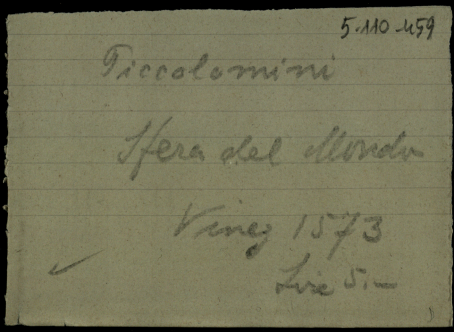 5.110.459
Piccolomini
Sfera del Mondo
Vineg 1573
Lire 5.-